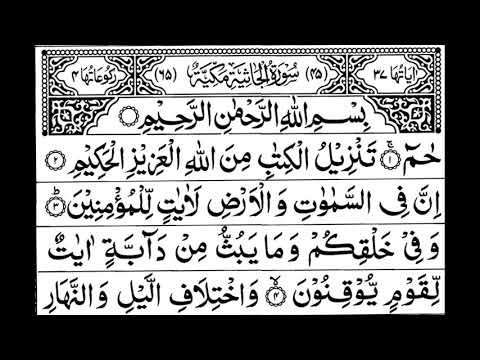 اٰیَاتُهَا ۳۷ (۴۵) سُوْرَةُ الْجَاثِیَةِ مَكِّیَّةٌ (۶۵) رُكُوْعَاتُهَا ۴
بِسْمِ اللّٰهِ الرَّحْمٰنِ الرَّحِیْمِ
حٰمٓ ۚ﴿۱﴾ تَنْزِیْلُ الْكِتٰبِ مِنَ اللّٰهِ الْعَزِیْزِ الْحَكِیْمِ ﴿۲﴾
اِنَّ فِی السَّمٰوٰتِ وَ الْاَرْضِ لَاٰیٰتٍ لِّلْمُؤْمِنِیْنَ ؕ﴿۳﴾
وَ فِیْ خَلْقِكُمْ وَ مَا یَبُثُّ مِنْ دَآبَّةٍ اٰیٰتٌ
لِّقَوْمٍ یُّوْقِنُوْنَ ۙ﴿۴﴾ وَ اخْتِلَافِ الَّیْلِ وَ النَّهَارِ